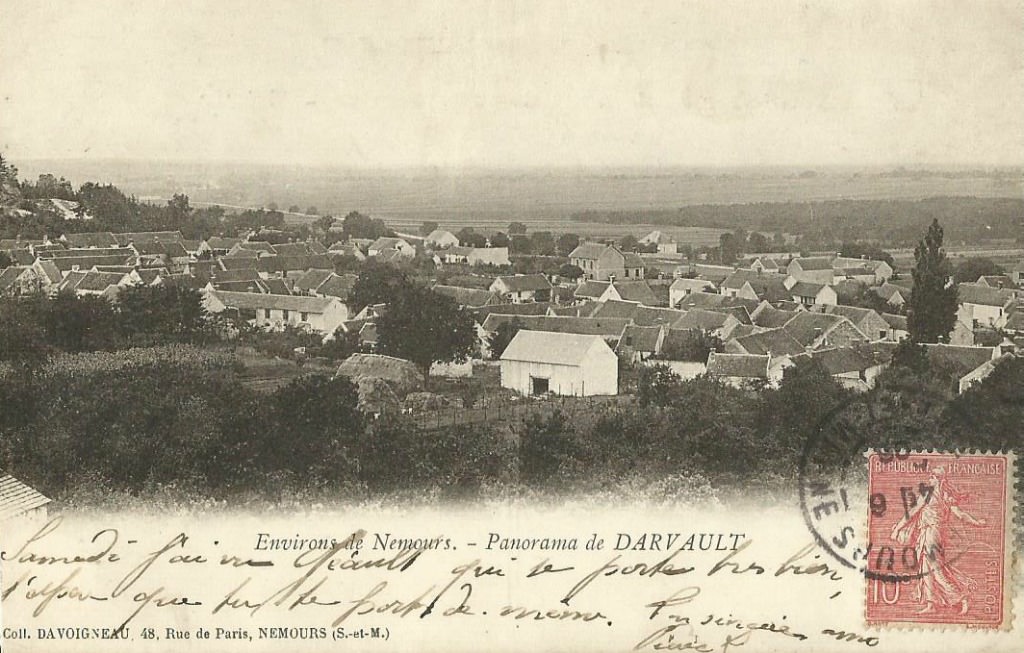 Environs de Nemours. - Panorama de DARVAULT
Samedi j'ai vu qui se porte très bien,
que tu te porte de même. Un sincère ami
Coll. DAVOIGNEAU, 48, Rue de Paris, NEMOURS (S.-et-M.)
RÉPUBLIQUE FRANÇAISE
10
POSTES